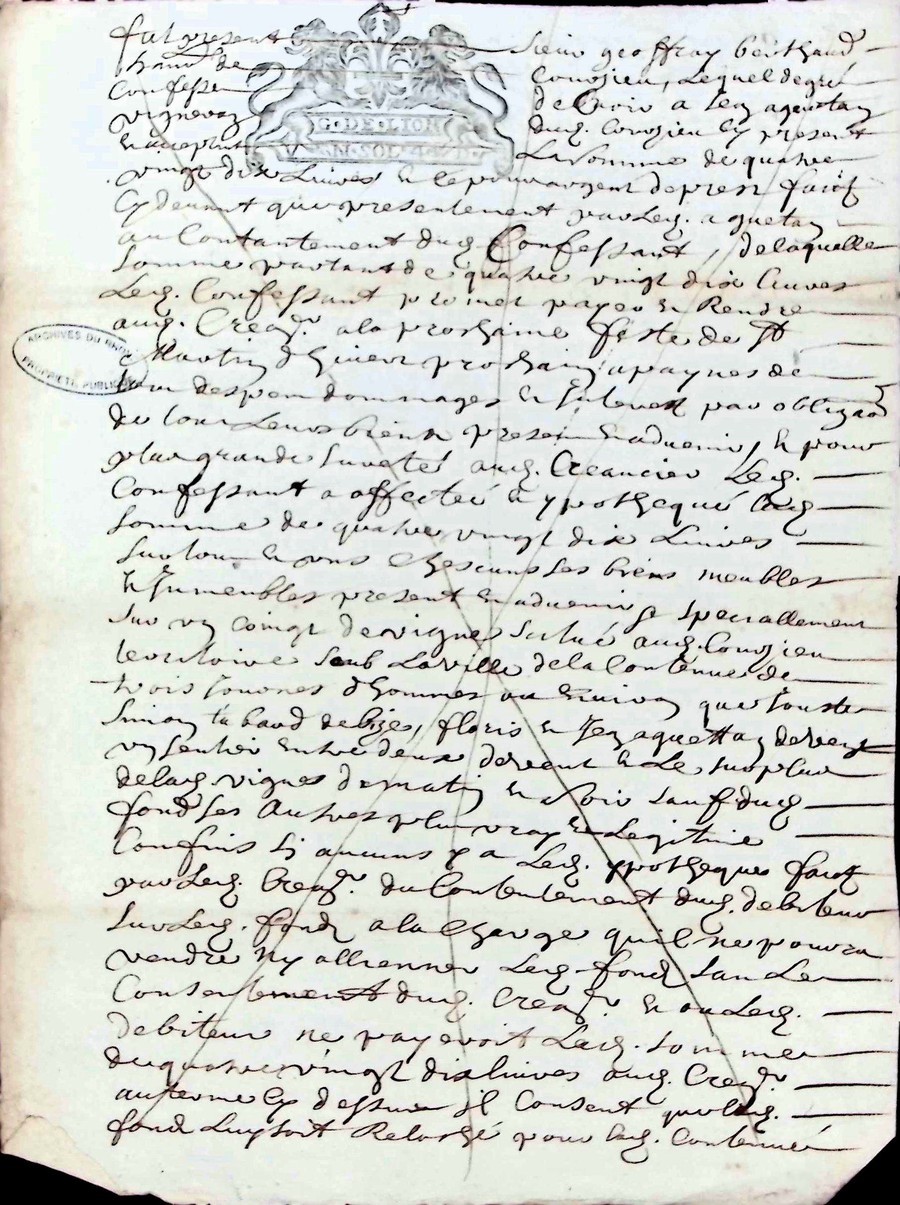 fut present sieur geoffray berthaud
hanᵗ de Couzieu, lequel de gré
Confesse debvoir a Jen aguetan
vigneron dud. Couzieu cy present
et acceptant La somme de quatre
G. DE. LION
vingt dix Livres et ce pour argent de prest faict
cy devant que presentement par led. aguetan
au Contantement dud. Confessant, de laquelle
somme partant de quatre vingt dix livres
Led. Confessant promet payer et Rendre
aud. Crean.ʳ a la prochaine feste de St
Martin d'hiver prochain a paynes de
tous despen dommages et interest par obligaōn
de tous leurs biens present et advenir, et pour
plus grande sureté aud. Creancier Led.
Confessant a affecté et ypothequé lad.
somme de quatre vingt dix Livres
sur tous et uns chescuns ses biens meubles
et Jmeubles present et advenir et specialement
sur un coing de vignes scitué aud. Couzieu
territoire soub La ville de la Contenue de
trois journes d'hommes ou environ que jouste
Simon
un sentier entre deux de vent et Le surplus
de lad. vignes de matin et soir sauf dud.
fond ses Autres plus vray et Legitime
Confins si aucuns y a Led. ypotheque faict
par Led. Crean.ʳ du Contentement dud. debiteur
sur Led. fond a la Charge qu'il ne pourra
vendre ny allienner Led. fond san Le
Consentement dud. Crean.ʳ et ou Led.
debiteur ne payeroit Lad. somme
de quatre vingt dix livres aud. Crean.ʳ
au terme cy dessus il Consent que led.
fond Luy soit Relasché pour lad. Contenue
ARCHIVES DU RHONE
PROPRIÉTÉ PUBLIQUE